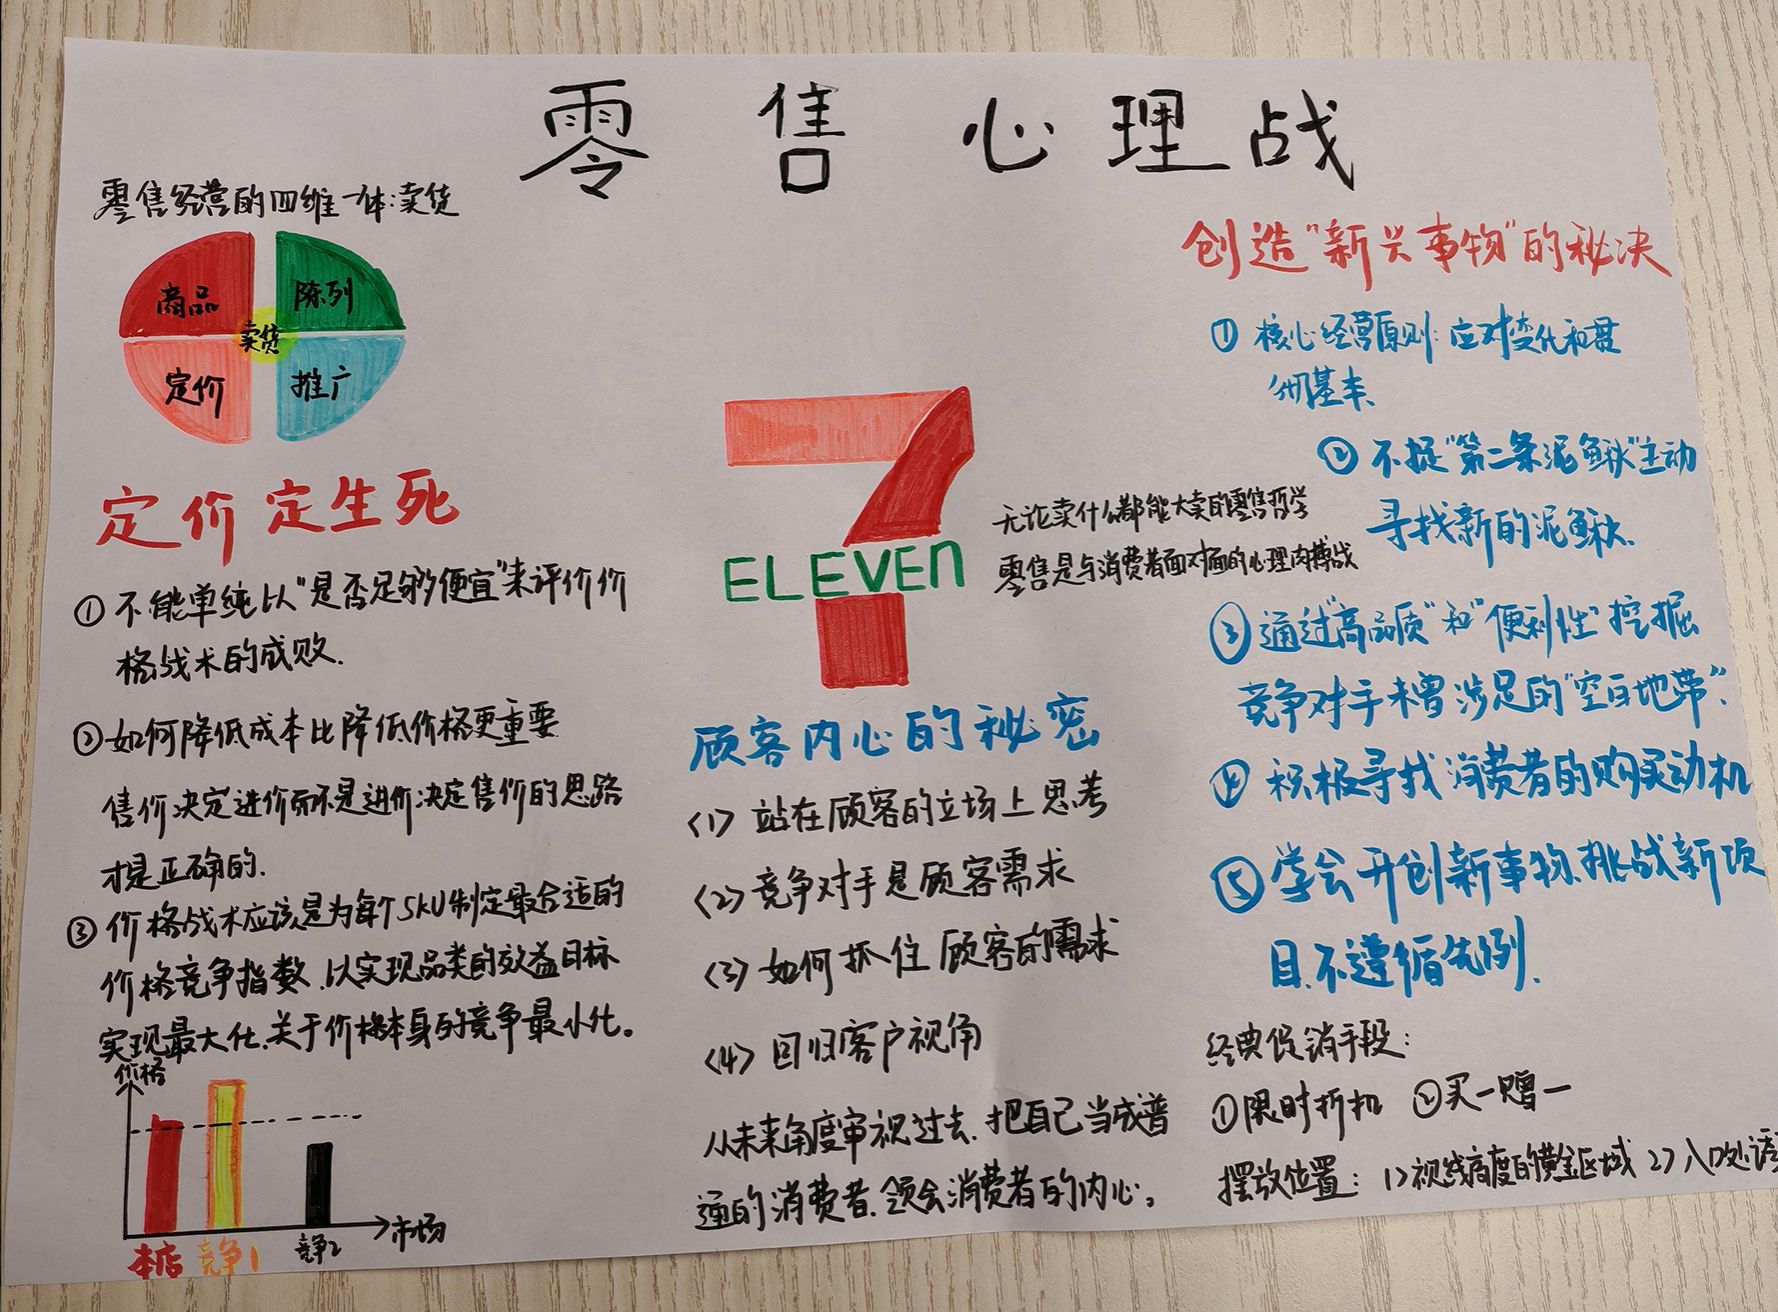 零售心理战
零售经营的四维一体:卖货
商品
陈列
卖货
定价
推广
定价定生死
① 不能单纯以"是否足够便宜"来评价价
格战术的成败.
② 如何降低成本比降低价格更重要
售价决定进价而不是进价决定售价的思路
才是正确的.
③ 价格战术应该是为每个SKU制定最合适的
价格竞争指数.以实现品类的效益目标
实现最大化.关于价格本身的竞争最小化。
价格
市场
本店
竞争1
竞争2
7
ELEVEn
无论卖什么都能大卖的零售哲学
零售是与消费者面对面的心理肉搏战
顾客内心的秘密
<1> 站在顾客的立场上思考
<2> 竞争对手是顾客需求
<3> 如何抓住顾客的需求
<4> 回归客户视角
从未来角度审视过去.把自己当成普
通的消费者.领会消费者的内心。
创造"新兴事物"的秘决
① 核心经营原则:应对变化和贯
彻基本.
② 不捉"第二条泥鳅"主动
寻找新的泥鳅.
③ 通过"高品质"和"便利性"挖掘
竞争对手未曾涉足的"空白地带".
④ 积极寻找消费者的购买动机
⑤ 学会开创新事物.挑战新项
目.不遵循先例.
经典促销手段:
①限时折扣 ②买一赠一
摆放位置: 1>视线高度的黄金区域 2>入口处诱